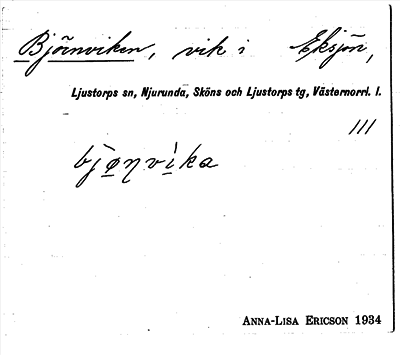 Björnviken, vik i Eksjön,
Ljustorps sn, Njurunda, Sköns och Ljustorps tg, Västernorrl. l.
III
bjønvika
ANNA-LISA ERICSON 1934